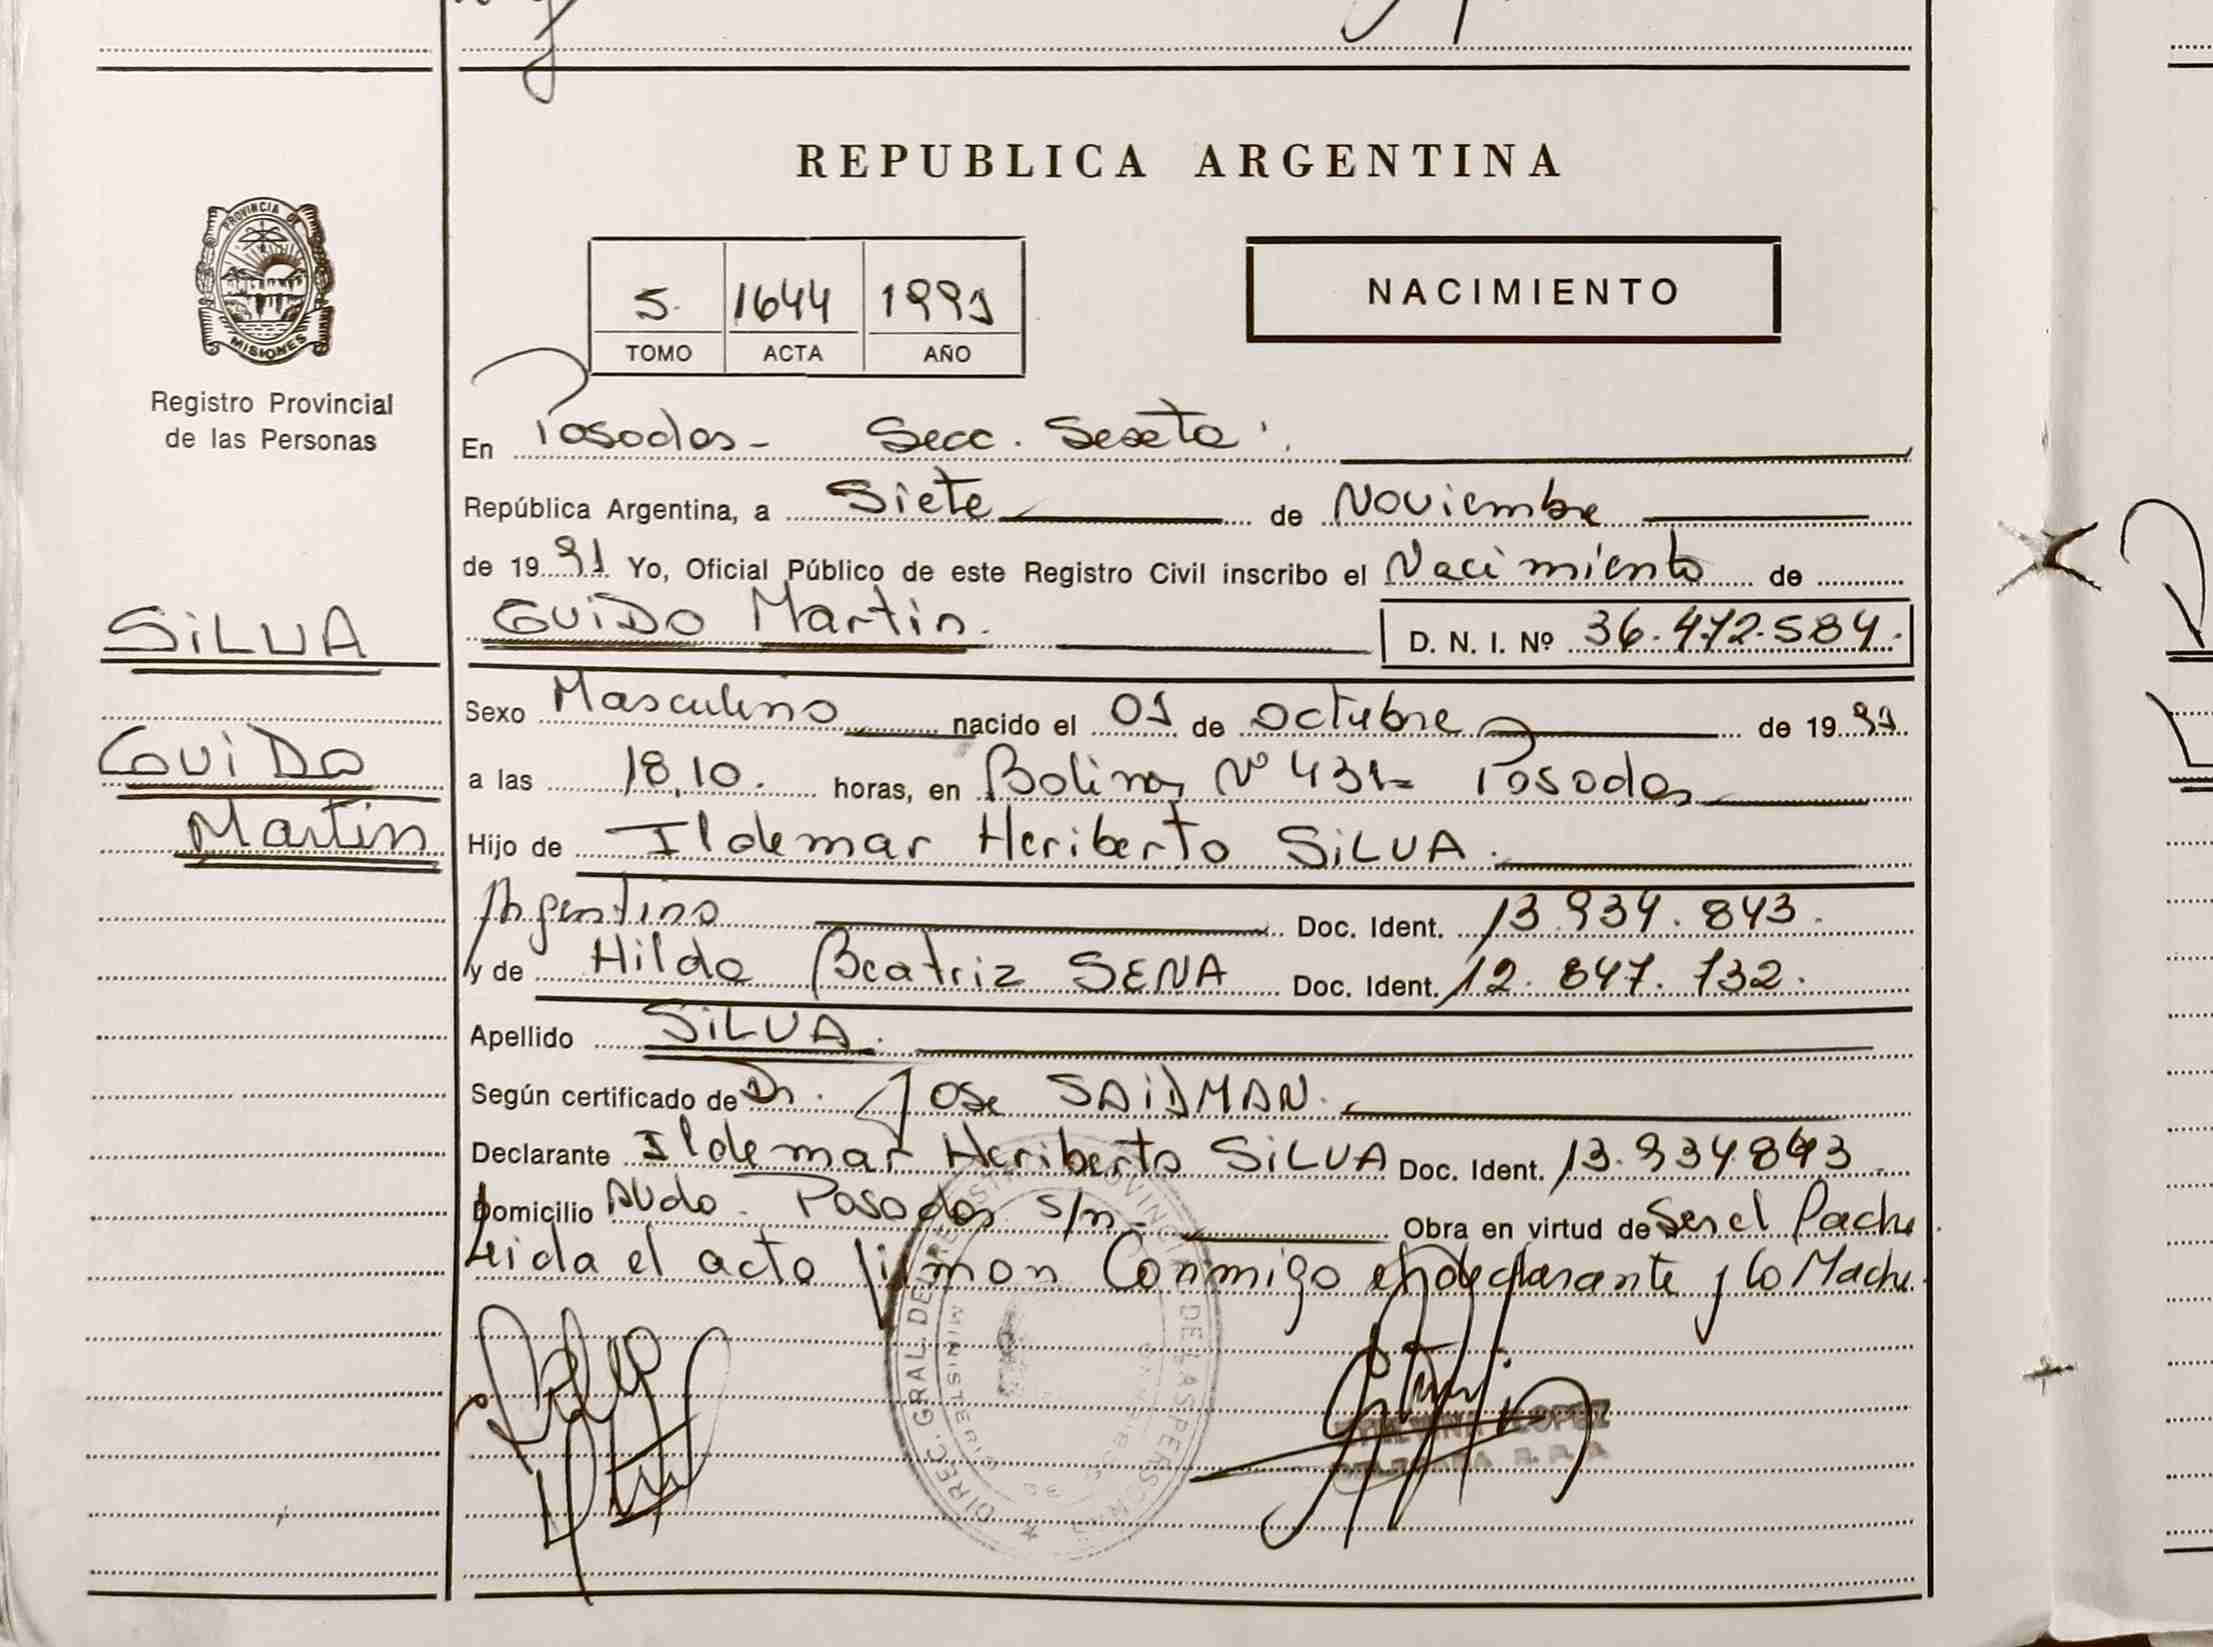 REPUBLICA ARGENTINA
PROVINCIA DE
MISIONES
Registro Provincial
de las Personas
5. 1644 1991
TOMO ACTA AÑO
NACIMIENTO
En Posadas - Secc. Sexta.
República Argentina, a Siete de Noviembre
de 1991 Yo, Oficial Público de este Registro Civil inscribo el Nacimiento de
GUiDO Martin. D. N. I. Nº 36.472.584.
SiLVA
GuiDo
Martin
Sexo Masculino nacido el 01 de octubre de 1991
a las 18,10. horas, en Nº 431- Posadas
Hijo de Ildemar Heriberto SiLVA.
Argentino Doc. Ident. 13.934.843.
y de Hilda Beatriz SENA Doc. Ident. 12.847.732.
Apellido SiLVA.
Según certificado de Dr. Jose SAIDMAN.
Declarante Ildemar Heriberto SiLVA Doc. Ident. 13.934.843
Domicilio Avda. Posadas s/n - Obra en virtud de Ser el Padre
Leida el acta firman Conmigo el declarante y la Madre.
DIREC. GRAL. DEL REGISTRO PROVINCIAL DE LAS PERSONAS
LOPEZ